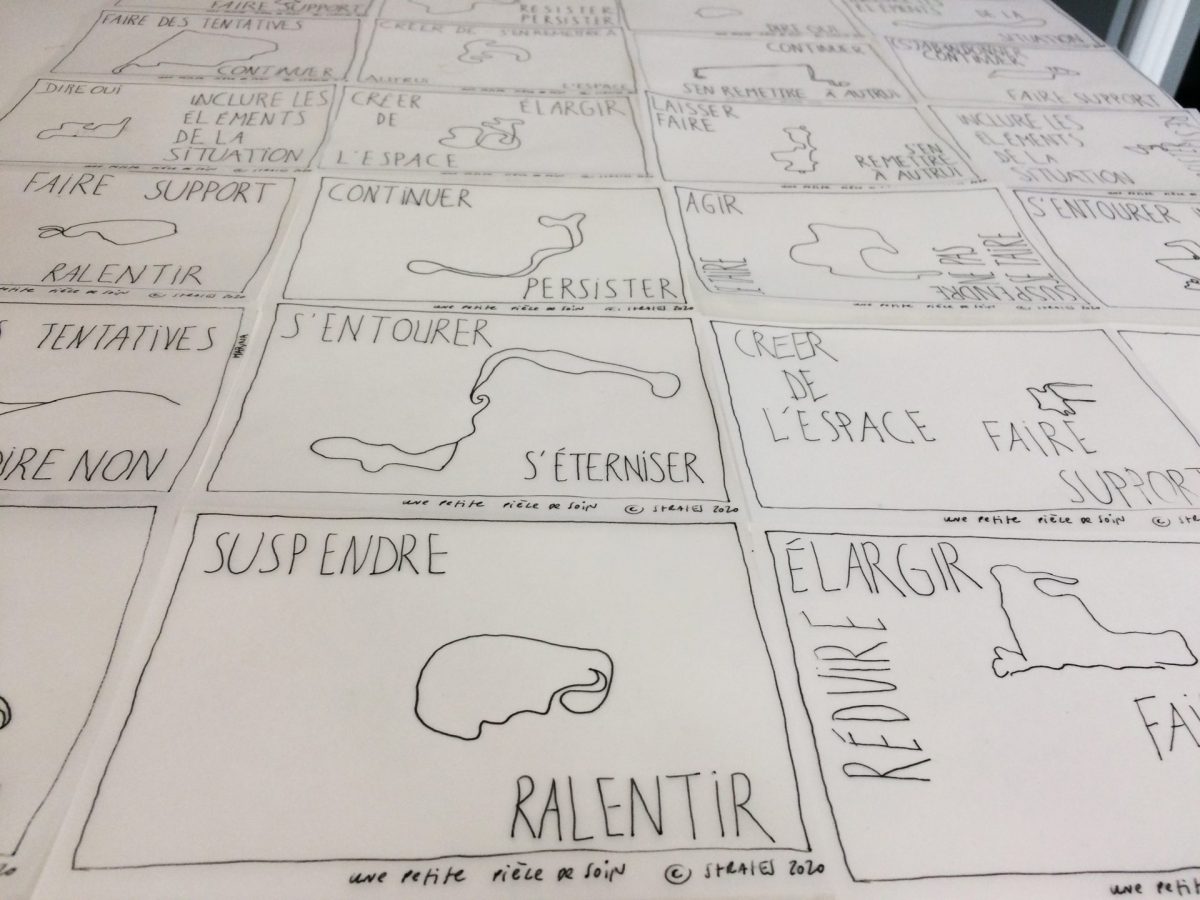 FAIRE SUPPORT
RESISTER
PERSISTER
DIRE OUI
DE LA
SITUATION
FAIRE DES TENTATIVES
CONTINUER
CREER DE
S'EN REMETTRE A
AUTRUI
L'ESPACE
CONTINUER
S'EN REMETTRE A AUTRUI
CONTINUER
FAIRE SUPPORT
DIRE OUI
INCLURE LES
ELEMENTS
DE LA
SITUATION
CREER
DE
L'ESPACE
ÉLARGIR
LAISSER
FAIRE
S'EN
REMETTRE
A AUTRUI
INCLURE LES
ELEMENTS
DE LA
SITUATION
FAIRE SUPPORT
RALENTIR
une petite pièce de soin © STRATES 2020
CONTINUER
PERSISTER
une petite pièce de soin © STRATES 2020
AGIR
FAIRE
NE PAS
SE FAIRE
SUSPENDRE
une petite pièce de soin © STRATES 2020
S'ENTOURER
TENTATIVES
DIRE NON
S'ENTOURER
S'ÉTERNISER
une petite pièce de soin © STRATES 2020
CREER
DE
L'ESPACE
FAIRE
SUPPORT
une petite pièce de soin ©
SUSPENDRE
RALENTIR
une petite pièce de soin © STRATES 2020
ÉLARGIR
RÉDUIRE
FAI
une petite